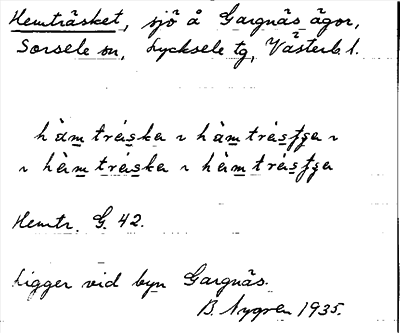 Hemträsket, sjö å Gargnäs ägor,
Sorsele sn, Lycksele tg, Västerb. l.
hàm tràska ~ hàm tràsfga ~
~ hàm tràska ~ hàm tràsfga
Hemtr. G. 42.
Ligger vid byn Gargnäs.
B. Nygren 1935.